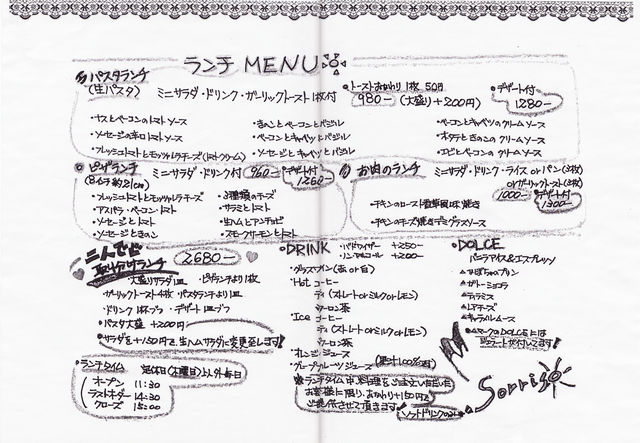 ランチ MENU
パスタランチ
(生パスタ) ミニサラダ・ドリンク・ガーリックトースト1枚付
・トーストおかわり1枚 50円
980- (大盛り+200円)
・デザート付
1280-
・ナスとベーコンのトマトソース
・きのことベーコンとバジル
・ベーコンとキャベツのクリームソース
・ソーセージの辛口トマトソース
・ベーコンとキャベツとバジル
・ホタテときのこのクリームソース
・フレッシュトマトとモッツァレラチーズ(トマトクリーム)
・ソーセージとキャベツとバジル
・エビとベーコンのクリームソース
ピザランチ
(8カット約21cm)
ミニサラダ・ドリンク付 960-
デザート付
1260-
・フレッシュトマトとモッツァレラチーズ
・3種類のチーズ
・アスパラ・ベーコン・トマト
・サラミとトマト
・ソーセージとトマト
・生ハムとアンチョビ
・ソーセージときのこ
・スモークサーモンとトマト
お肉のランチ
ミニサラダ・ドリンク・ライス or パン(2枚)
orガーリックトースト(2枚)
1000-
デザート付
1300-
・チキンのロースト香草風味焼き
・チキンのチーズ焼きデミグラスソース
二人でど
取り分けランチ
2680-
大盛りサラダ1皿 ピザランチより1枚
ガーリックトースト4枚 パスタランチより1皿
ドリンク1杯づつ デザート1皿づつ
・パスタ大盛 +200円
・サラダを+150円で、生ハムサラダに変更致します!
・ランチタイム
定休日(木曜日)以外毎日
オープン 11:30
ラストオーダー 14:30
クローズ 15:00
DRINK
・バドワイザー +250-
・ノンアルコール +200-
・グラスワイン(赤 or 白)
・Hot コーヒー
ティ(ストレート or ミルク or レモン)
ウーロン茶
・Ice コーヒー
ティ(ストレート or ミルク or レモン)
ウーロン茶
・オレンジジュース
・グレープフルーツジュース (果汁100%)
ランチタイム中、お料理をご注文いただいた
お客様に限り、おかわり+150円で
ご提供させて頂きます。
ソフトドリンクのみ
DOLCE
バニラアイス&エスプレッソ
▲かぼちゃのプリン
▲ガトーショコラ
▲ティラミス
▲レアチーズ
▲キャラメルムース
▲マークのDOLCEには
ジェラートが付してます!
Sorriso